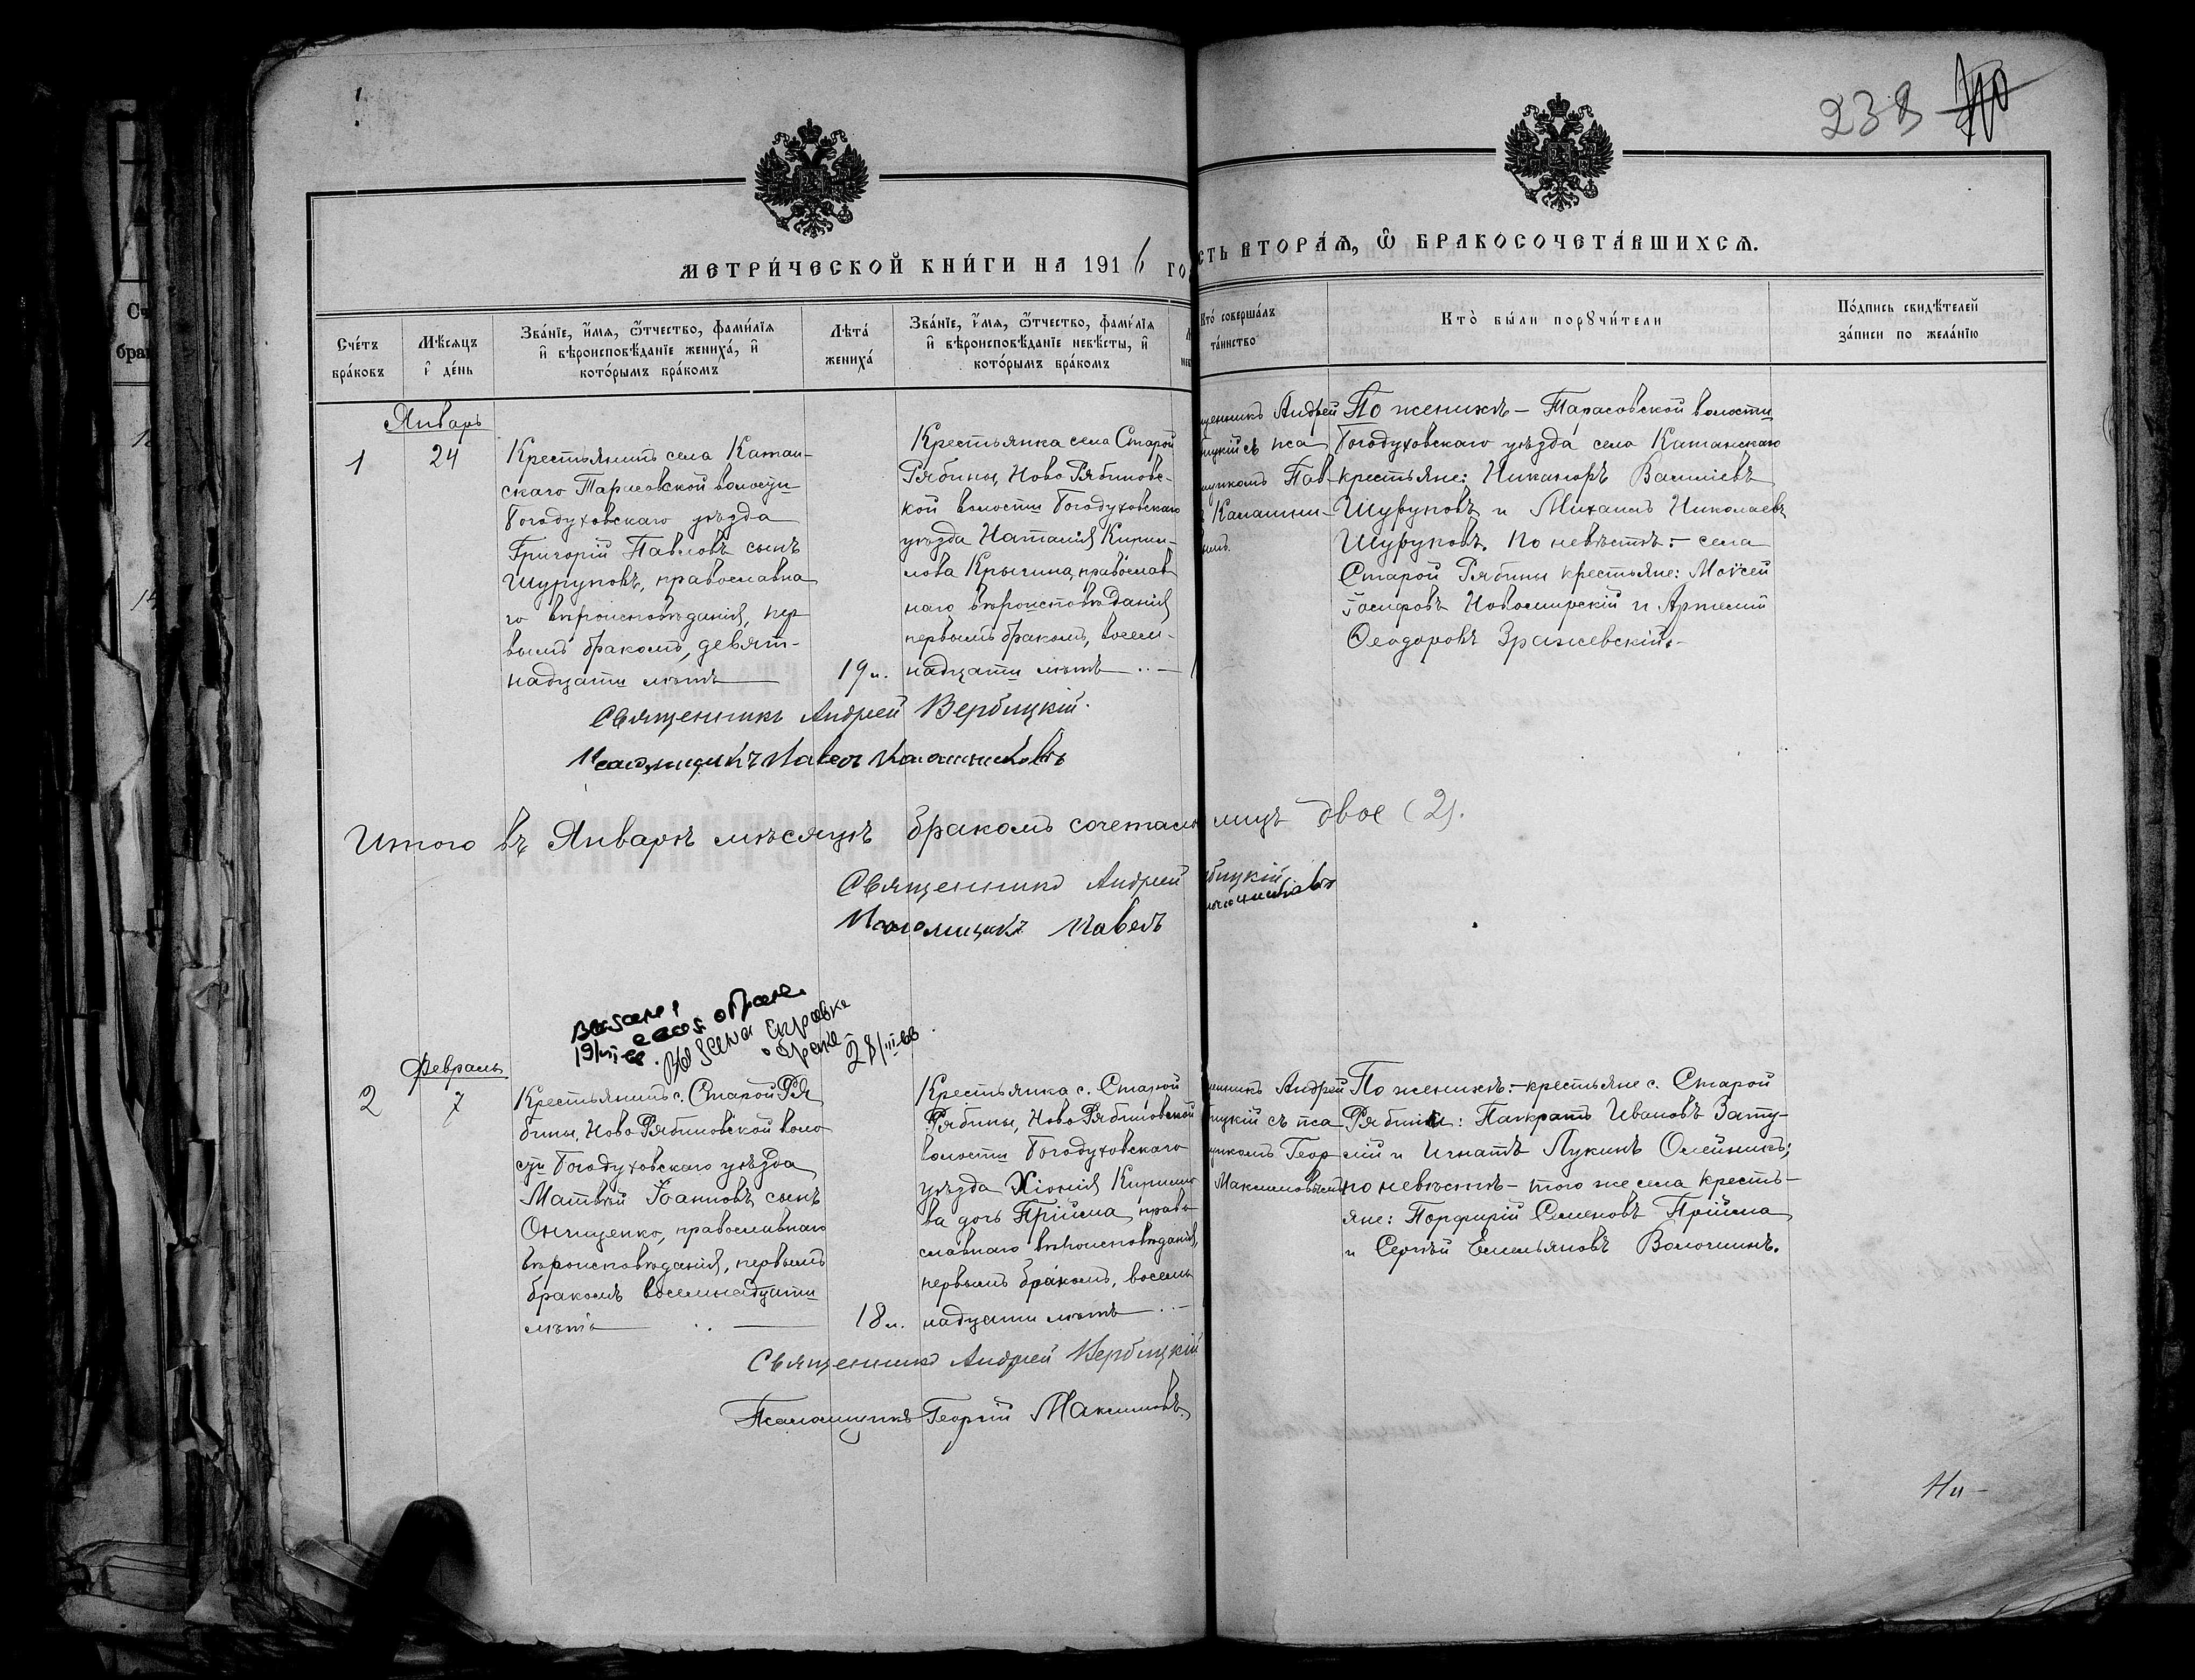 238
МЕТРИ́ЧЕСКОЙ КНИ́ГИ НА 1916 ГО
СТЬ ВТОРА́Ѧ, Ѽ БРАКОСОЧЕТА́ВШИХСѦ.
Сче́тъ бра́ковъ
Мѣ́сяцъ и де́нь
Зва́нїе, и҆́мѧ, ѻ҆́тчество, фами́лїѧ
и҆ вѣроисповѣ́данїе жениха́, и҆
кото́рымъ бра́комъ
Лѣта́ жениха́
Зва́нїе, и҆́мѧ, ѻ҆́тчество, фами́лїѧ
и҆ вѣроисповѣ́данїе невѣ́сты, и҆
кото́рымъ бра́комъ
Кто̀ соверша́лъ
та́инство
Кто̀ бы́ли порꙋчи́тели
По́дпись свидѣ́телей
за́писи по жела́нїю
Январь
1
24
Крестьянинъ села Катан-
скаго Тарасовской волости
Богодуховскаго уѣзда
Григорій Павловъ сынъ
Шуруповъ, православна
го вѣроисповѣданія, пер
вымъ бракомъ, девят-
надцати лѣтъ
19 л.
Крестьянка села Старой
Рябины, Ново Рябиновс-
кой волости Богодуховскаго
уѣзда Наталія Кирил-
лова Крыгина, православ
наго вѣроисповѣданія
первымъ бракомъ, восем-
надцати лѣтъ
щенникъ Андрей
ицкій съ пса
мщикомъ Пав-
Калашни-
вымъ.
По женихѣ - Тарасовской волости
Богодуховскаго уѣзда села Катанскаго
крестьяне: Никаноръ Василіевъ
Шуруповъ и Михаилъ Николаевъ
Шуруповъ. По невѣстѣ: - села
Старой Рябины крестьяне: Моѵсей
Іосифовъ Новомирскій и Артемій
Ѳеодоровъ Зражевскій.-
Священникъ Андрей Вербицкій.
Псаломщикъ Павелъ Калашниковъ
Итого въ Январѣ мѣсяцѣ бракомъ сочетало лицъ двое (2).
Священникъ Андрей бицкій
Псаломщикъ Павелъ Калашниковъ
19/III 68. Выдана справка
о браке 28/III-68
Февраль
2
7
Крестьянинъ с. Старой Ря
бины, Ново Рябиновской воло
сти Богодуховскаго уѣзда
Матвѣй Іоанновъ сынъ
Онищенко, православнаго
вѣроисповѣданія, первымъ
бракомъ восемнадцати
лѣтъ
18 л.
Крестьянка с. Старой
Рябины, Ново Рябиновской
волости Богодуховскаго
уѣзда Хіонія Кирилло
ва дочь Прійма, право
славнаго вѣроисповѣданія,
первымъ бракомъ, восемь
надцати лѣтъ
щенникъ Андрей
ицкій съ пса
щикомъ Геор
Максимовымъ
По женихѣ: - крестьяне с. Старой
Рябины: Панкратъ Ивановъ Зату-
лій и Игнатъ Лукинъ Олейникъ;
по невѣстѣ - того же села кресть-
яне: Порфирій Семеновъ Прійма
и Сергѣй Емельяновъ Волошинъ.
Священникъ Андрей Вербицкій
Псаломщикъ Георгій Максимовъ.